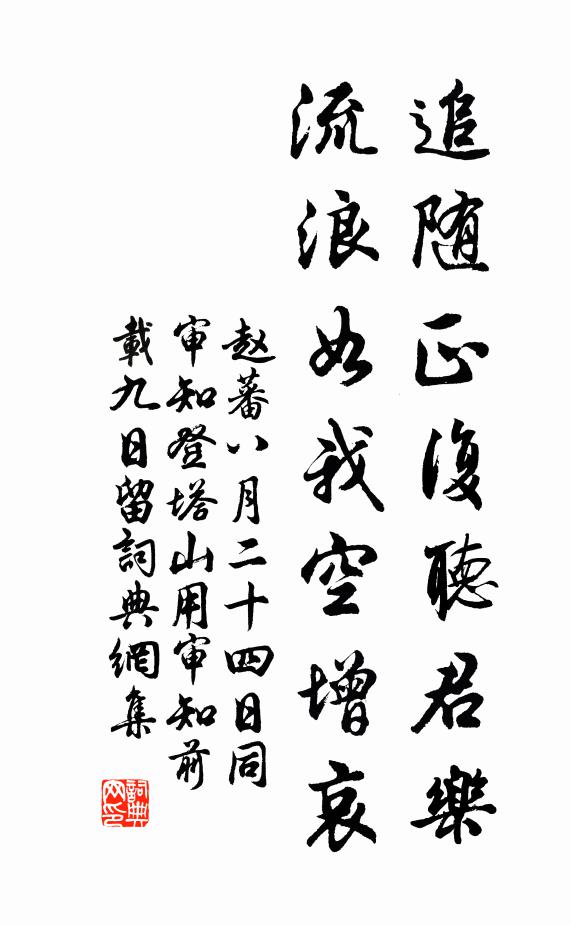 追随正復聽君樂
流浪如我空增哀
趙蕃八月二十四日同
审知登塔山用审知前
載九日留詞典網集
詞典
网印